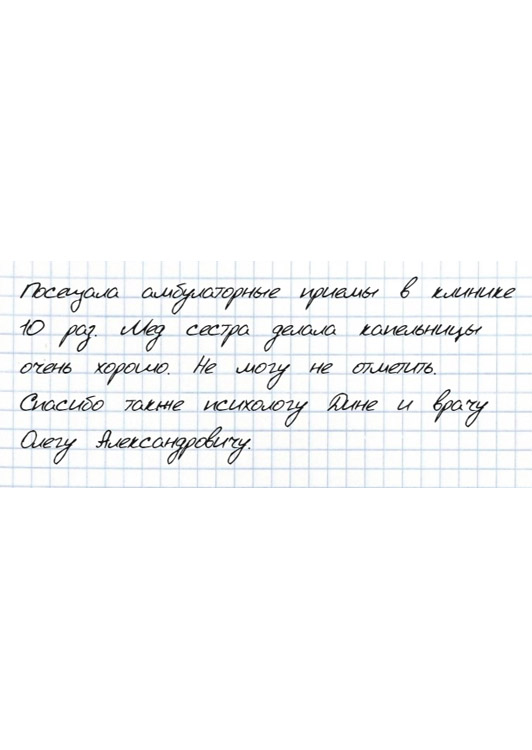 Посещала амбулаторные приемы в клинике
10 раз. Мед сестра делала капельницы
очень хорошо. Не могу не отметить.
Спасибо также психологу Дине и врачу
Олегу Александровичу.